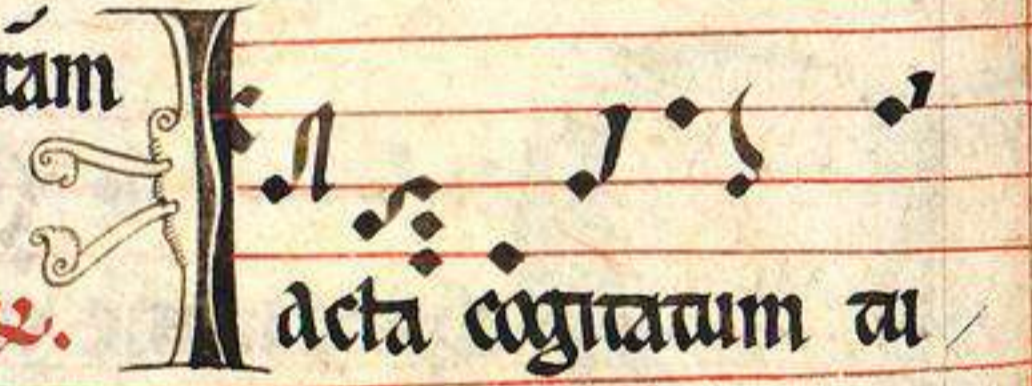 tam
Iacta cogitatum tu